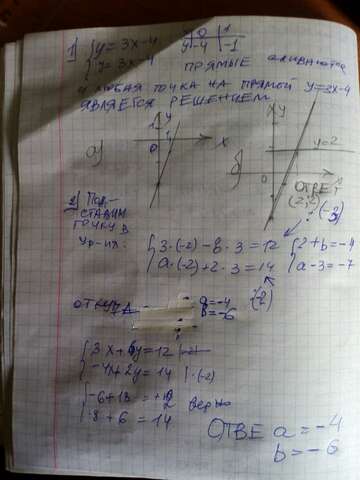 1) { y = 3x-4   x | 0 | 1
{ y = 3x-4   y | -4 | -1
ПРЯМЫЕ
ЛЮБАЯ ТОЧКА НА ПРЯМОЙ y=3x-4
ЯВЛЯЕТСЯ РЕШЕНИЕМ
y
y
0
x
а)
б)
y=2
0
ОТВЕТ
(2;2)
2) ПОД-
СТАВИМ
ТОЧКУ В
УР-ИЯ:
{ 3·(-2)-в·3=12
{ a·(-2)+2·3=14
{ 2+b=-4
{ a-3=-7
ОТКУДА
a=-4
b=-6
{ 3x+6y=12
{ -4x+2y=14 | ·(-2)
{ -6+18=12
{ 8+6=14
верно
ОТВЕ a=-4
b=-6